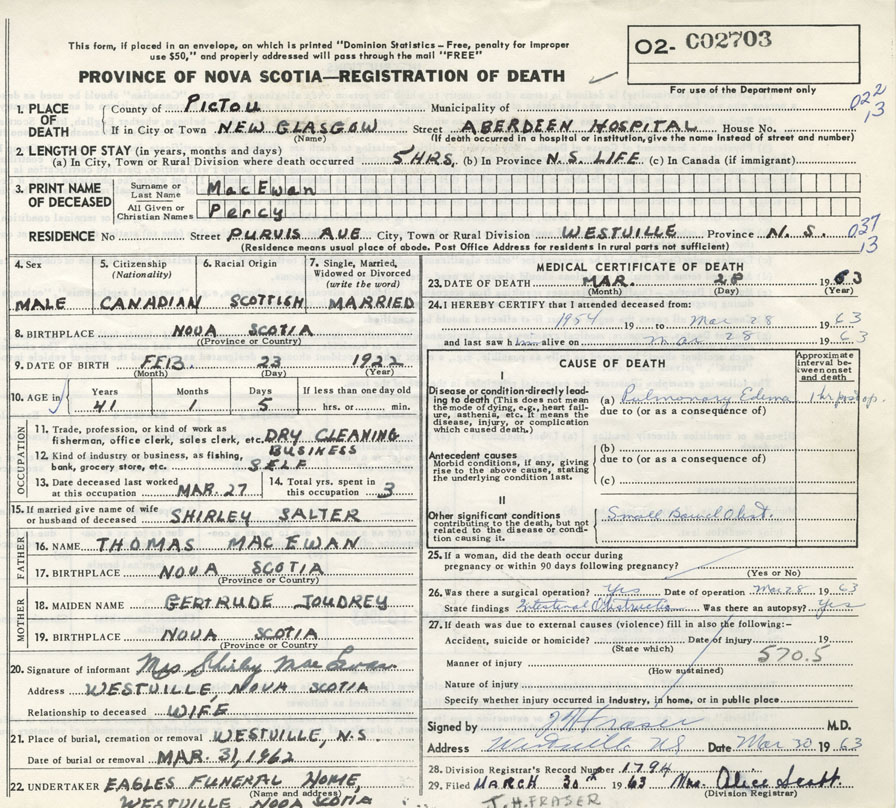 This form, if placed in an envelope, on which is printed "Dominion Statistics – Free, penalty for improper
use $50," and properly addressed will pass through the mail "FREE"
PROVINCE OF NOVA SCOTIA—REGISTRATION OF DEATH
02- C02703
For use of the Department only
022
13
1. PLACE OF DEATH County of PICTOU Municipality of
If in City or Town NEW GLASGOW Street ABERDEEN HOSPITAL House No.
(Name) (If death occurred in a hospital or institution, give the name instead of street and number)
2. LENGTH OF STAY (in years, months and days)
(a) In City, Town or Rural Division where death occurred 5 HRS. (b) In Province N.S. LIFE (c) In Canada (if immigrant)
3. PRINT NAME OF DECEASED Surname or Last Name MacEwan
All Given or Christian Names Percy
RESIDENCE No Street PURVIS AVE City, Town or Rural Division WESTVILLE Province N.S. 037
13
(Residence means usual place of abode. Post Office Address for residents in rural parts not sufficient)
4. Sex 5. Citizenship (Nationality) 6. Racial Origin 7. Single, Married, Widowed or Divorced (write the word)
MALE CANADIAN SCOTTISH MARRIED
8. BIRTHPLACE NOVA SCOTIA
(Province or Country)
9. DATE OF BIRTH FEB. 23 1922
(Month) (Day) (Year)
10. AGE in Years Months Days If less than one day old
41 1 5 hrs. or min.
OCCUPATION
11. Trade, profession, or kind of work as fisherman, office clerk, sales clerk, etc. DRY CLEANING
12. Kind of industry or business, as fishing, bank, grocery store, etc. BUSINESS SELF
13. Date deceased last worked at this occupation MAR. 27 14. Total yrs. spent in this occupation 3
15. If married give name of wife or husband of deceased SHIRLEY SALTER
FATHER
16. NAME THOMAS MAC EWAN
17. BIRTHPLACE NOVA SCOTIA
(Province or Country)
MOTHER
18. MAIDEN NAME GERTRUDE JOUDREY
19. BIRTHPLACE NOVA SCOTIA
(Province or Country)
20. Signature of informant Mrs Shirley MacEwan
Address WESTVILLE, NOVA SCOTIA
Relationship to deceased WIFE
21. Place of burial, cremation or removal WESTVILLE, N.S.
Date of burial or removal MAR. 31, 1962
22. UNDERTAKER EAGLES FUNERAL HOME,
(Name and address)
WESTVILLE NOVA SCOTIA
MEDICAL CERTIFICATE OF DEATH
23. DATE OF DEATH MAR. 28 1963
(Month) (Day) (Year)
24. I HEREBY CERTIFY that I attended deceased from:
1954 19 to Mar 28 1963
and last saw him alive on Mar 28 1963
CAUSE OF DEATH
Approximate interval between onset and death
I
Disease or condition directly leading to death (This does not mean the mode of dying, e.g., heart failure, asthenia, etc. It means the disease, injury, or complication which caused death.)
(a) Pulmonary Edema 1 hr post op.
due to (or as a consequence of)
Antecedent causes
Morbid conditions, if any, giving rise to the above cause, stating the underlying condition last.
(b)
due to (or as a consequence of)
(c)
II
Other significant conditions
contributing to the death, but not related to the disease or condition causing it.
Small Bowel Obst.
25. If a woman, did the death occur during
pregnancy or within 90 days following pregnancy?
(Yes or No)
26. Was there a surgical operation? Yes Date of operation Mar 28 1963
State findings Intestinal Obstruction Was there an autopsy? Yes
27. If death was due to external causes (violence) fill in also the following:-
Accident, suicide or homicide? Date of injury 19
(State which)
570.5
Manner of injury
(How sustained)
Nature of injury
Specify whether injury occurred in industry, in home, or in public place
Signed by J H Fraser M.D.
Address Westville NS Date Mar 30 1963
28. Division Registrar's Record Number 1794
29. Filed MARCH 30th 1963 Mrs. Alice Scott
(Division Registrar)
J.H. FRASER